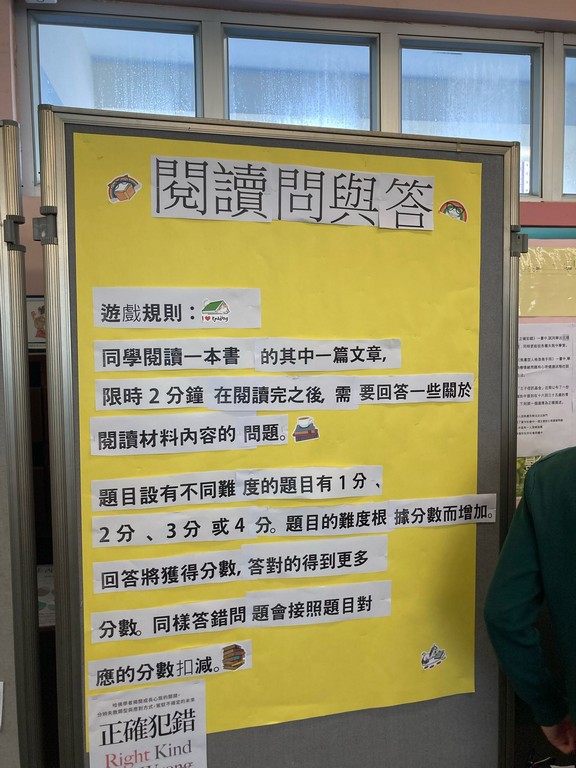 閱讀問與答
遊戲規則：
I ❤ reading
同學閱讀一本書 的其中一篇文章,
限時2分鐘 在閱讀完之後, 需 要回答一些關於
閱讀材料內容的 問題。
題目設有不同難 度的題目有1分 、
2分 、3分 或4 分。題目的難度根 據分數而增加。
回答將獲得分數, 答對的得到更多
分數。同樣答錯問 題會接照題目對
應的分數扣減。
哈佛學者揭開成長心態的關鍵，
正確犯錯
Right Kind